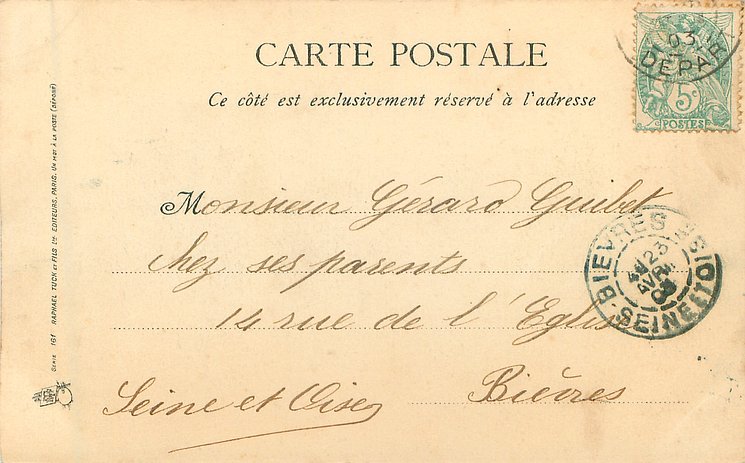 CARTE POSTALE
Ce côté est exclusivement réservé à l'adresse
03
DEPART
5c
POSTES
Monsieur Gérard Guibet
chez ses parents
14 rue de l'Eglise
Bièvres
Seine et Oise
BIEVRES
SEINE ET OISE
23
AVRIL
03
SÉRIE 161 RAPHAEL TUCK et FILS Ltd EDITEURS, PARIS. UN MOT A LA POSTE (DÉPOSÉ)